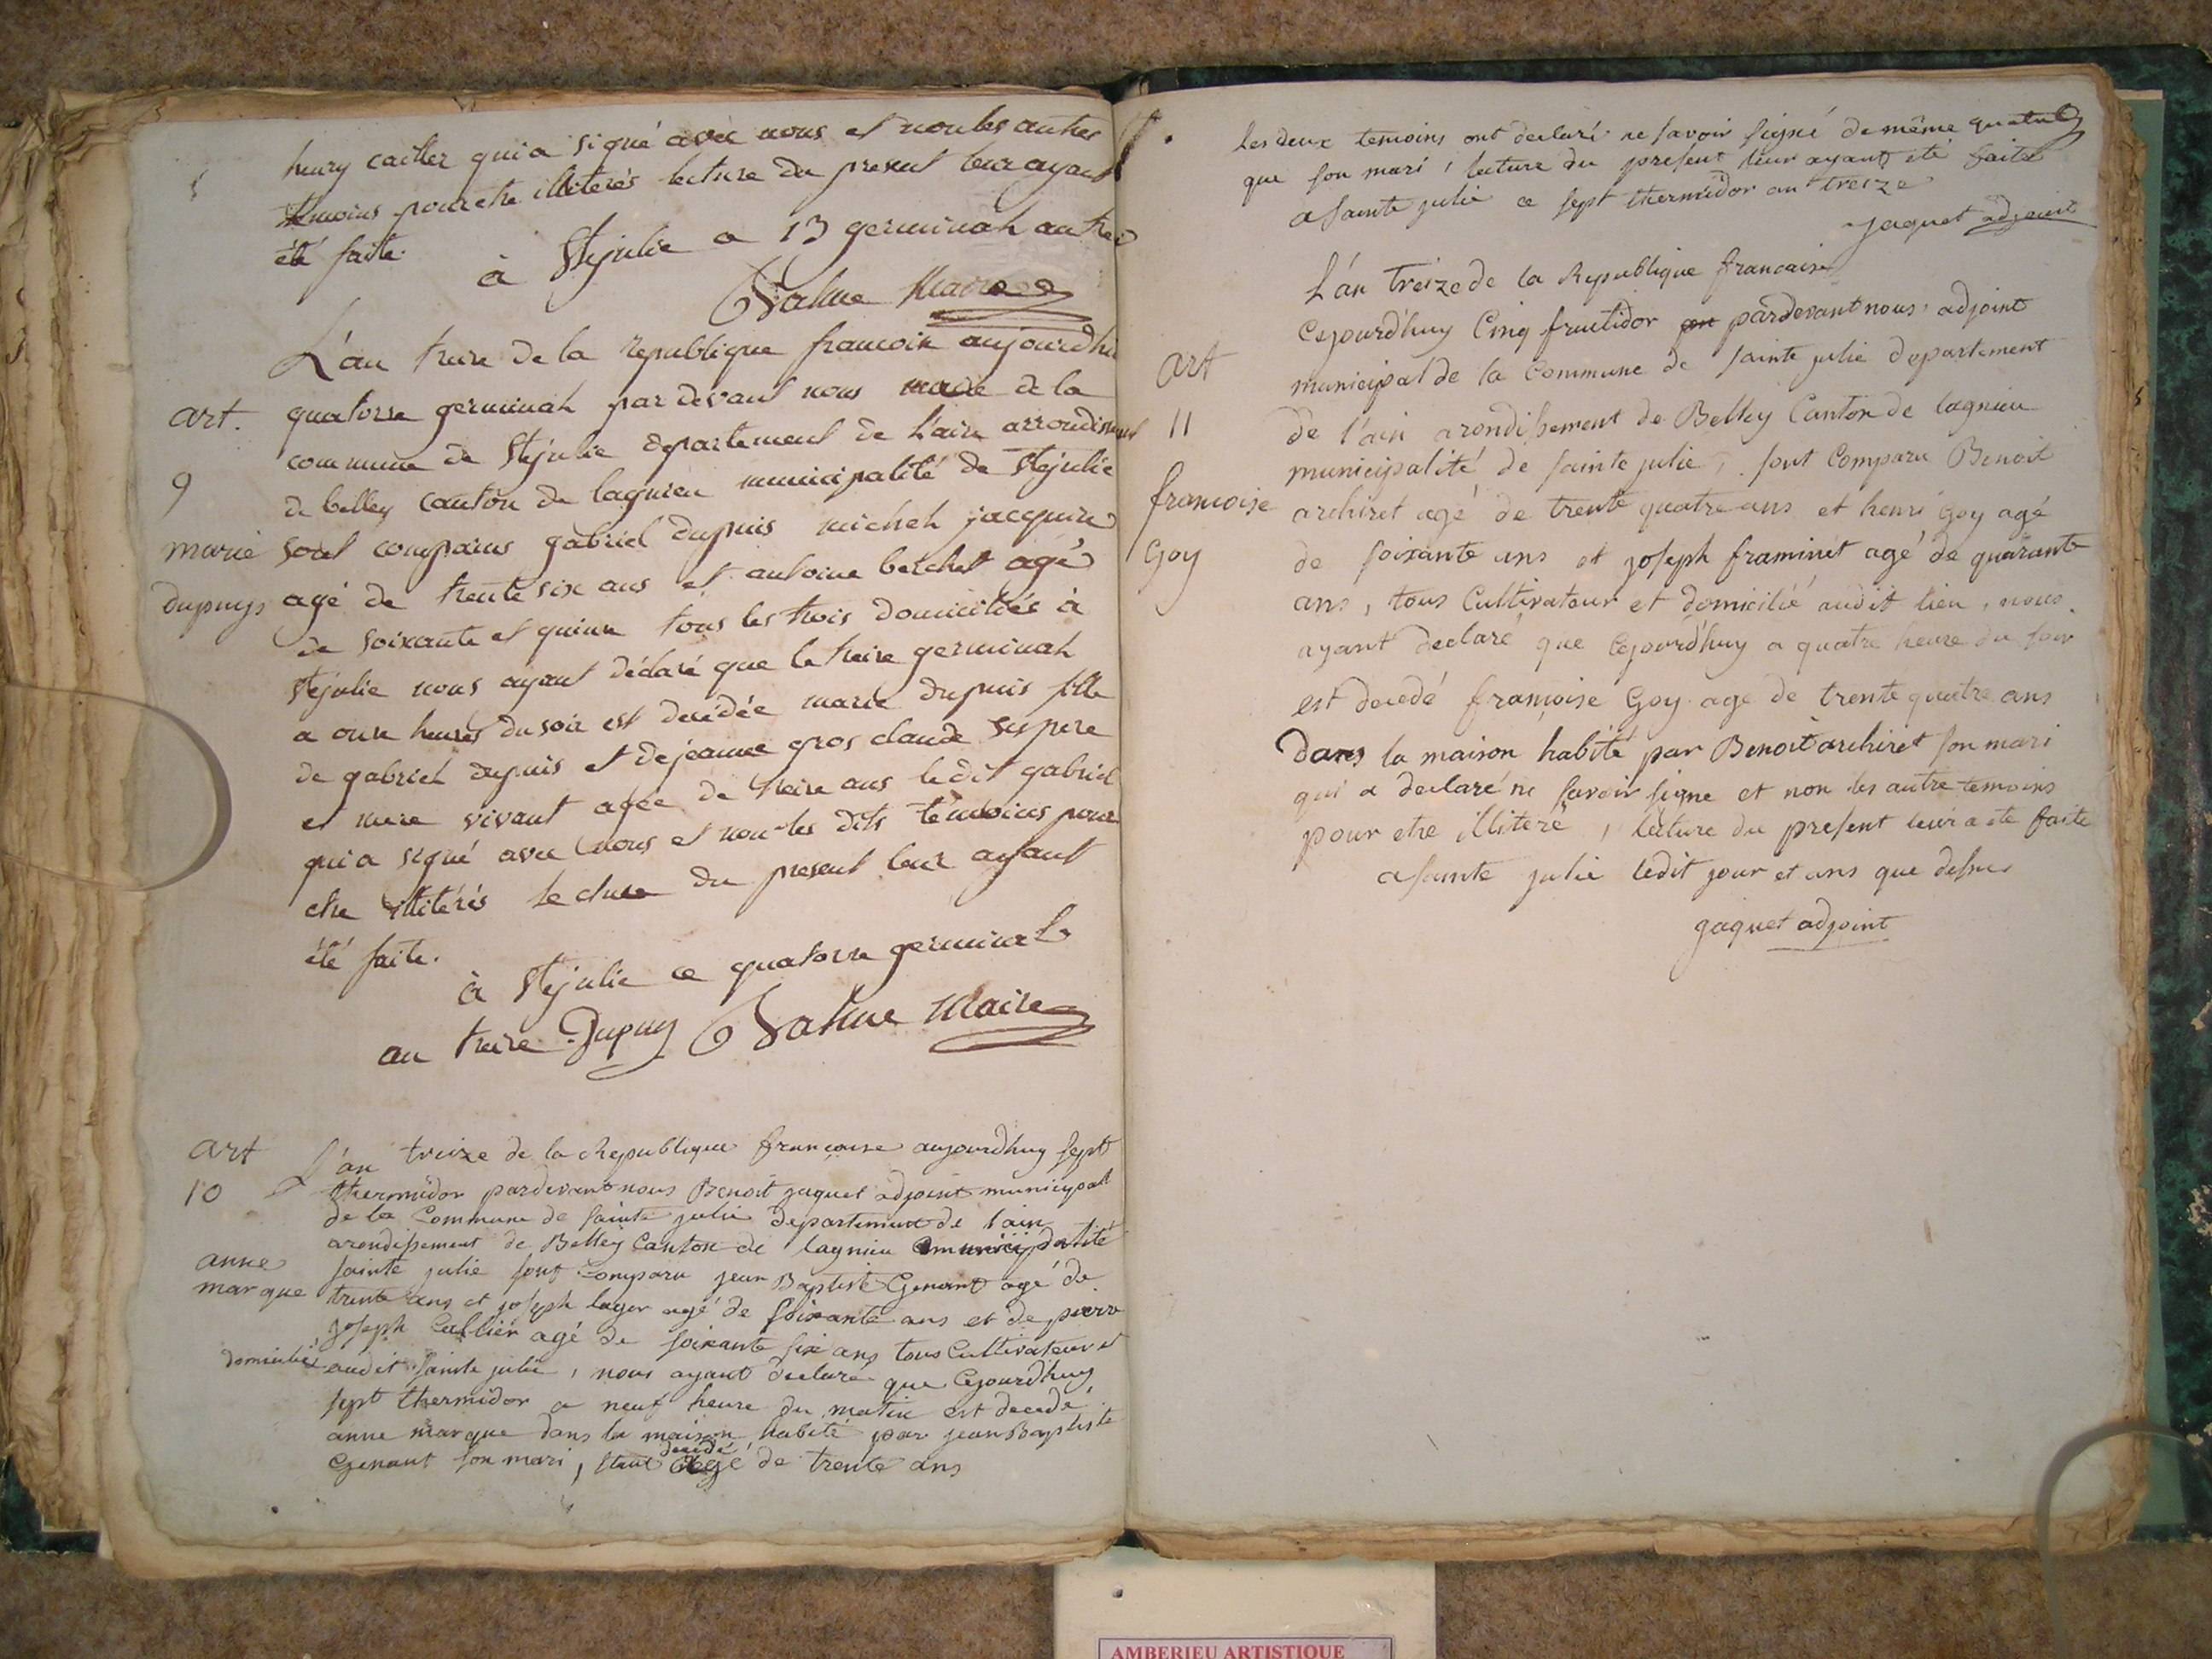 henry cailler qui a signé avec nous et non les autres
temoins pour etre illiterés lecture du present leur ayant
été faite.
à Ste julie ce 13 germinal an treize
Maire
L'an treize de la republique francoise aujourdhui
art. quatorze germinal par devant nous maire de la
commune de Ste julie departement de L'ain arrondissement
9 de belley canton de lagnieu municipalité de Ste julie
marie sont comparus gabriel dupuis michel jacquin
dupuys agé de trente six ans et antoine berchet agé
de soixante et quinze tous les trois domiciliés à
Ste julie nous ayant déclaré que le treize germinal
a onze heures du soir est decédée marie dupuis fille
de gabriel dupuis et de jeanne gros claude ses pere
et mere vivant agée de treize ans le dit gabriel
qui a signé avec nous et non les dits temoins pour
etre illitérés lecture du present leur ayant
été faite.
à Ste julie ce quatorze germinal
an treize Dupuy Maire
art L'an treize de la Republique françoise aujourdhuy sept
10 thermidor pardevant nous Benoit jaquet adjoint municipal
de la Commune de sainte julie departement de l'ain
arondissement de Belley Canton de lagnieu municipalité
anne sainte julie sont Comparu jean Baptiste Genant agé de
marque trente ans et joseph lager agé de soixante ans et de pierre
joseph Callier agé de soixante six ans tous Cultivateur et
domicilié audit sainte julie, nous ayant declaré que Cejourd'huy
sept thermidor a neuf heure du matin est decedé
anne marque dans la maison habité par jean Baptiste
Genant son mari, etant decedé agé de trente ans
les deux temoins ont declaré ne savoir signé de même
que son mari, lecture du present leur ayant été faite
a sainte julie ce sept thermidor an treize
jaquet adjoint
L'an treize de la Republique francaise
Cejourd'huy Cinq fructidor pardevant nous adjoint
art municipal de la Commune de sainte julie departement
11 de l'ain arondissement de Belley Canton de lagnieu
municipalité de sainte julie, sont Comparu Benoit
francoise archiret agé de trente quatre ans et henri Goy agé
Goy de soixante ans et joseph framinet agé de quarante
ans, tous Cultivateur et domicilié audit lieu, nous
ayant declaré que Cejourd'huy a quatre heure du soir
est decedé françoise Goy age de trente quatre ans
dans la maison habité par Benoit archiret son mari
qui a declaré ne savoir signe et non les autre temoins
pour etre illiteré, lecture du present leur a eté faite
a sainte julie ledit jour et ans que dessus
jaquet adjoint
AMBERIEU ARTISTIQUE